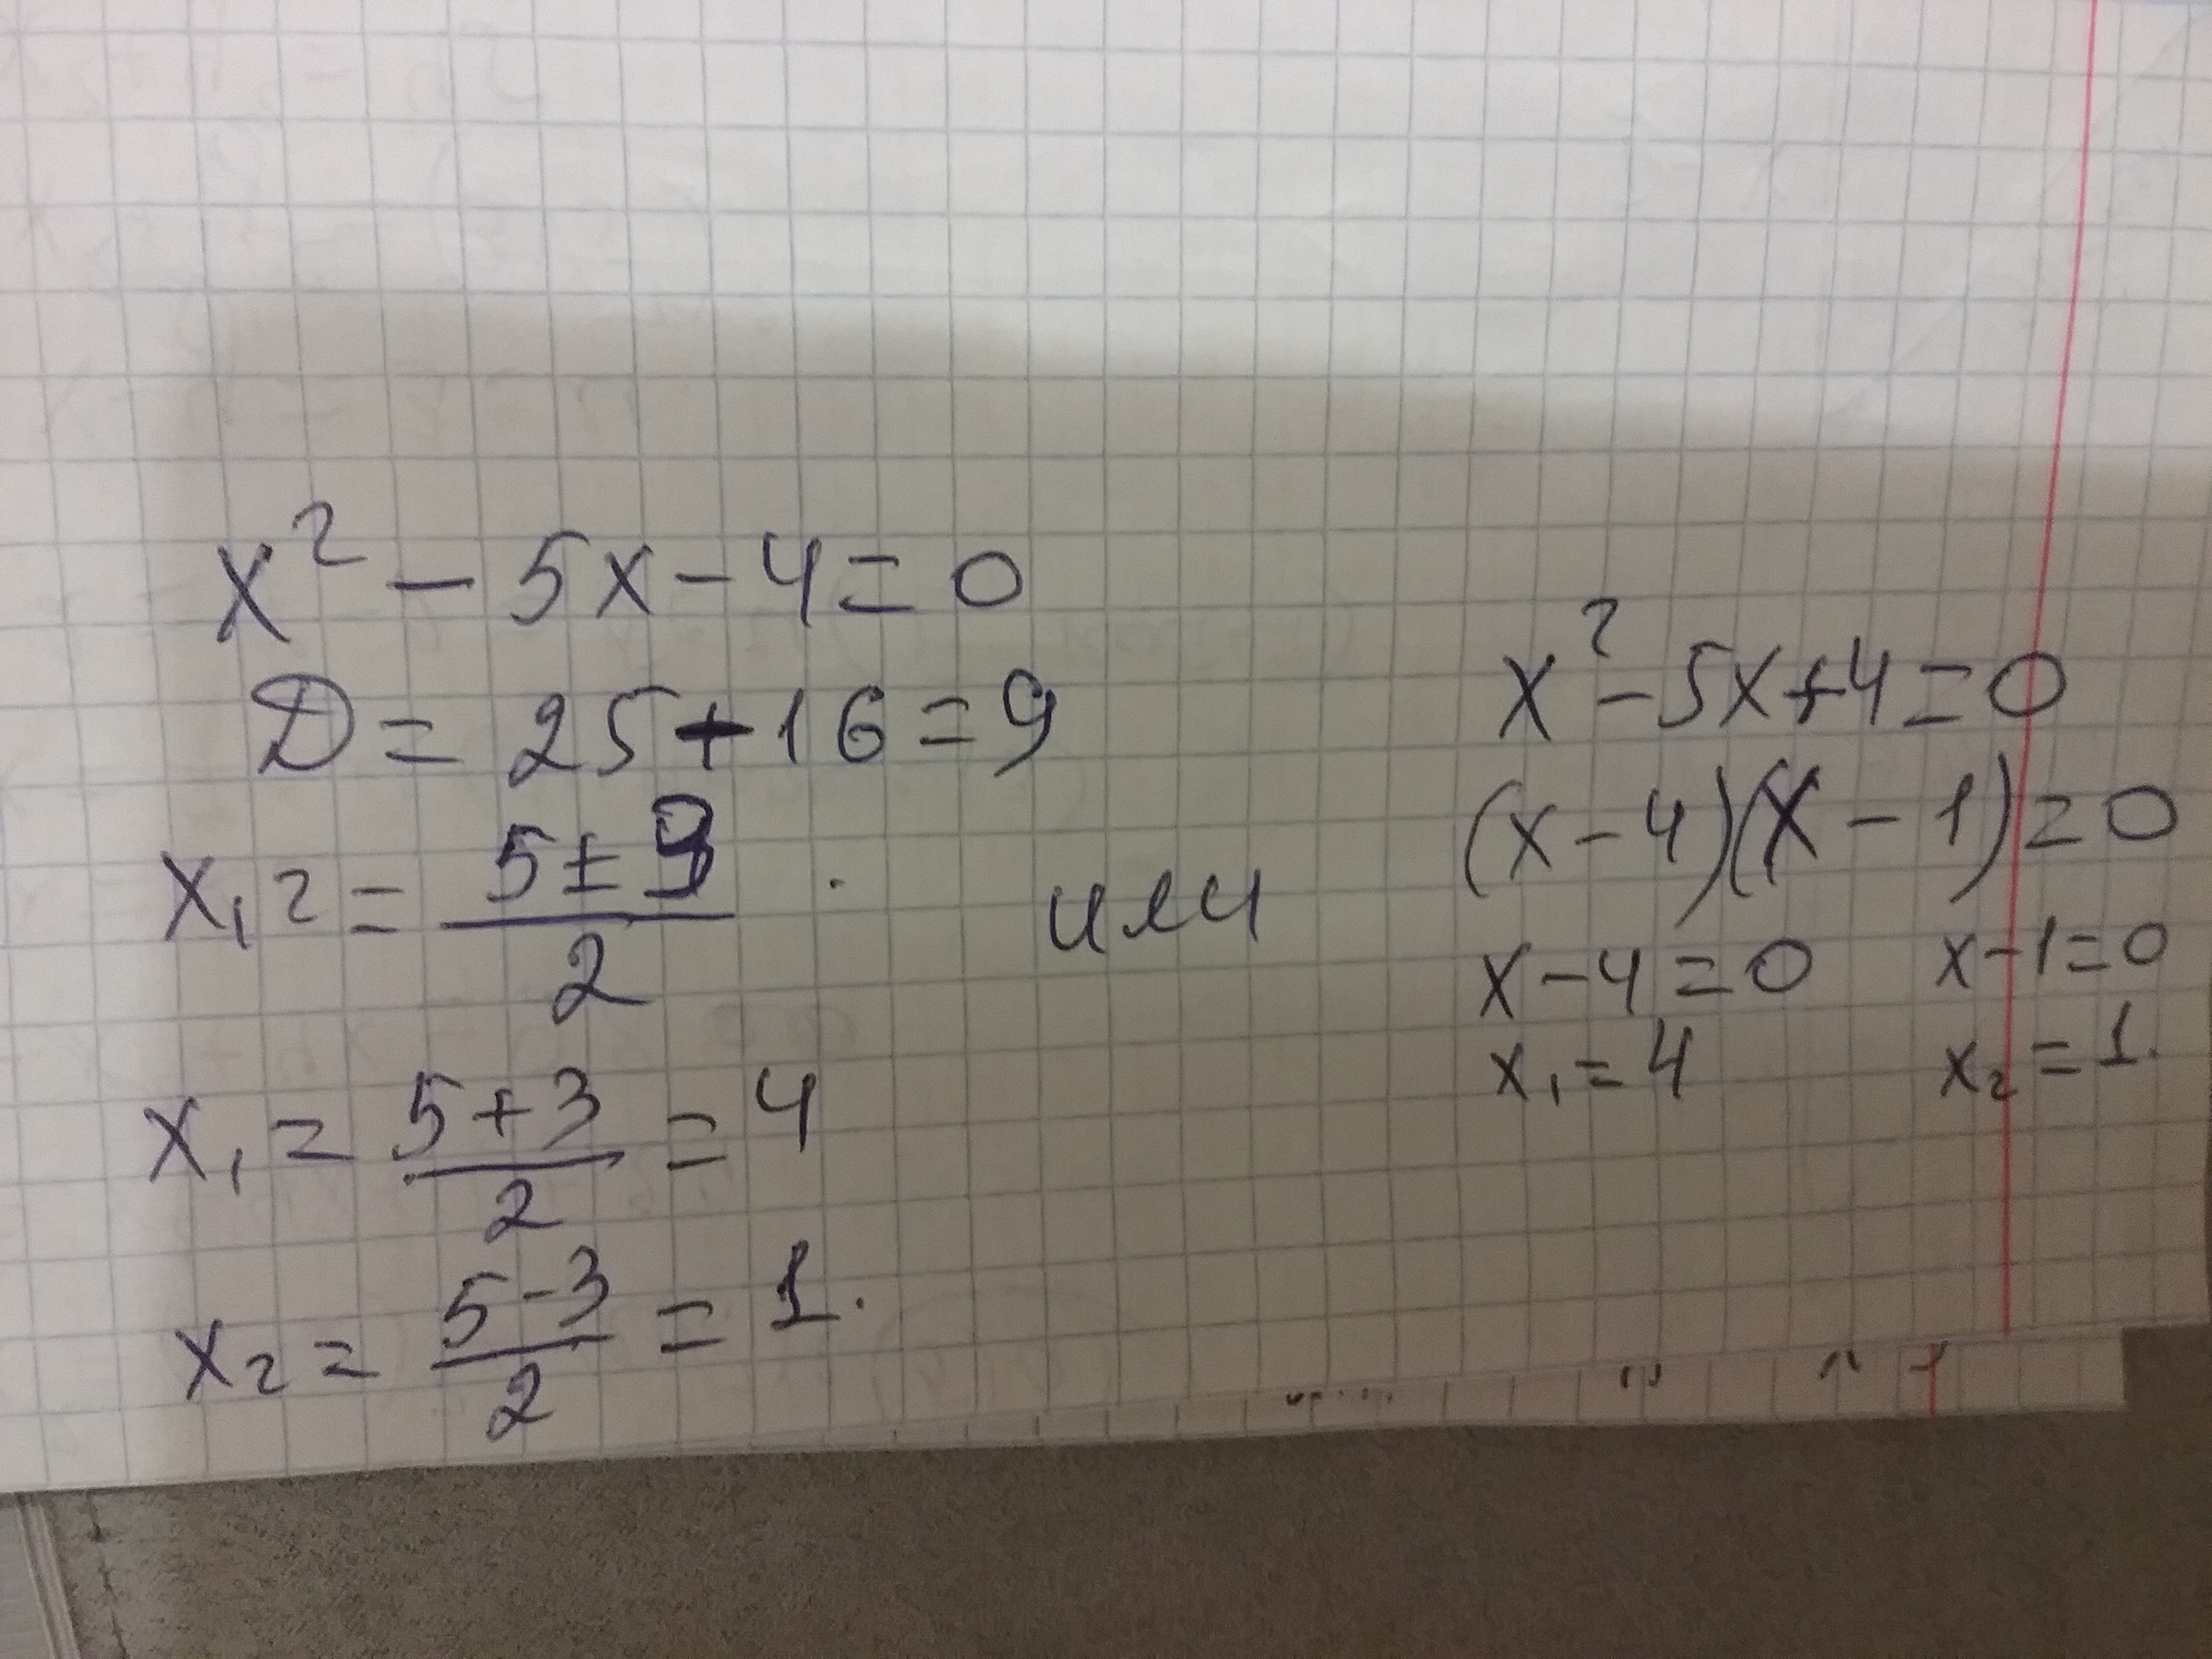 x² - 5x - 4 = 0
D = 25 + 16 = 9
x₁ ₂ = (5 ± 9)/2
x₁ = (5 + 3)/2 = 4
x₂ = (5 - 3)/2 = 1.
или
x² - 5x + 4 = 0
(x - 4)(x - 1) = 0
x - 4 = 0 x - 1 = 0
x₁ = 4 x₂ = 1.